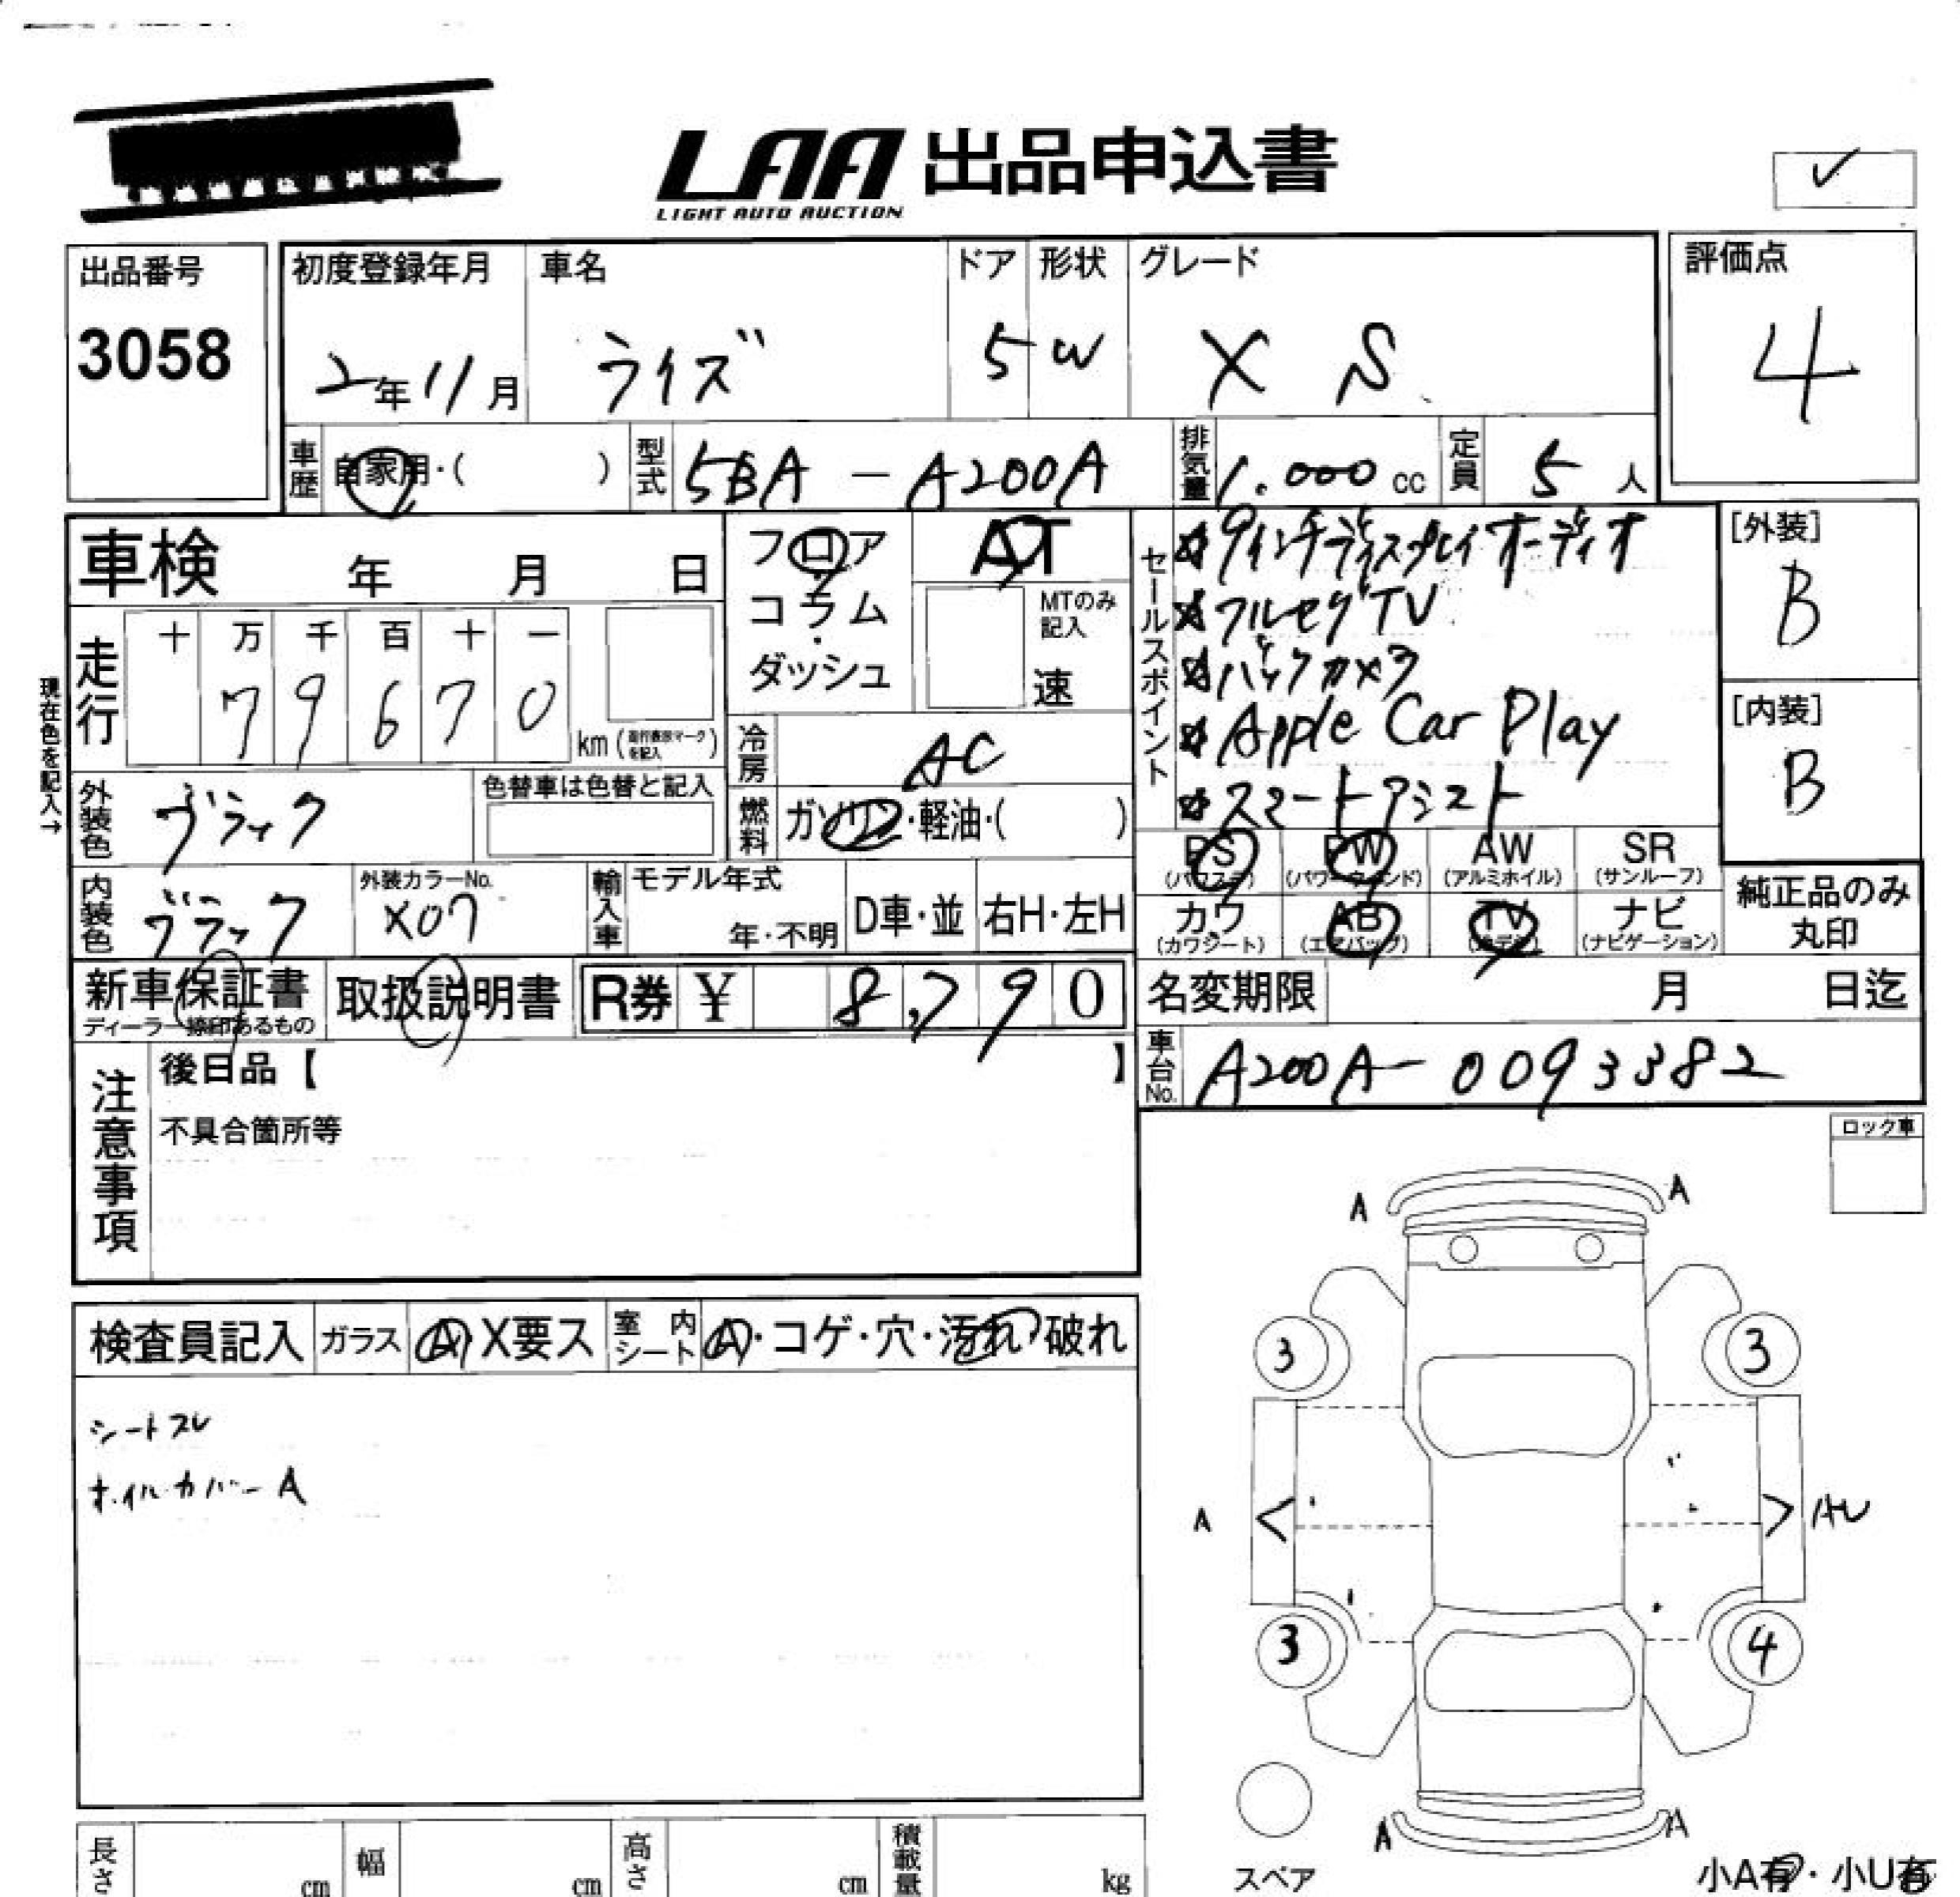 LAA 出品申込書
LIGHT AUTO AUCTION
✓
出品番号
3058
初度登録年月
2年11月
車名
ライズ
ドア
5
形状
W
グレード
X S
評価点
4
車歴
自家用・( )
型式
5BA - A200A
排気量
1.000 cc
定員
5 人
車検 年 月 日
フロア
・
コラム
・
ダッシュ
AT
MTのみ
記入
速
セールスポイント
☆9インチディスプレイオーディオ
☆フルセグTV
☆バックカメラ
☆Apple Car Play
☆スマートアシスト
[外装]
B
[内装]
B
現在色を記入→
走行
十 万 千 百 十 一
7 9 6 7 0
km (走行表示マークを記入)
冷房
AC
外装色
ブラック
色替車は色替と記入
燃料
ガソリン・軽油・( )
PS
(パワステ)
PW
(パワーウィンド)
AW
(アルミホイル)
SR
(サンルーフ)
内装色
ブラック
外装カラーNo.
X07
輸入車
モデル年式
年・不明
D車・並
右H・左H
カワ
(カワシート)
AB
(エアバッグ)
TV
ナビ
(ナビゲーション)
純正品のみ
丸印
新車保証書
ディーラー捺印あるもの
取扱説明書
R券 ¥ 8,790
名変期限 月 日迄
車台No.
A200A-0093382
注意事項
後日品【 】
不具合箇所等
ロック車
検査員記入
ガラス
A・X要ス
室内シート
A・コゲ・穴・汚れ・破れ
シートスレ
ホイルカバーA
A A
3 3
A < > AU
3 4
A A
スペア
小A有・小U有
長さ cm
幅 cm
高さ cm
積載量 kg